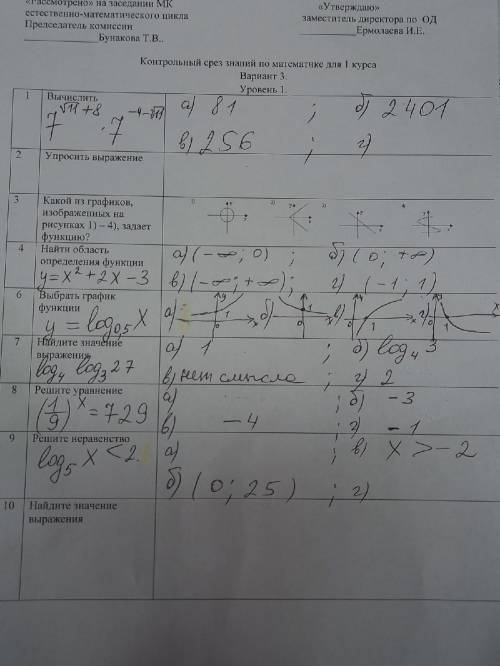 «Рассмотрено» на заседании МК
естественно-математического цикла
Председатель комиссии
____________Бунакова Т.В..
«Утверждаю»
заместитель директора по ОД
____________Ермолаева И.Е.
Контрольный срез знаний по математике для 1 курса
Вариант 3.
Уровень 1.
1 Вычислить
7^(√11+8) · 7^(-4-√11)
а) 81 ; б) 2401
в) 256 ; г)
2 Упросить выражение
3 Какой из графиков,
изображенных на
рисунках 1) – 4), задает
функцию?
1) 2) 3) 4)
4 Найти область
определения функции
y=x²+2x-3
а) (-∞; 0) ; б) (0; +∞)
в) (-∞; +∞); г) (-1; 1)
6 Выбрать график
функции
y = log₀,₅ x
а) б) в) г)
7 Найдите значение
выражения
log₄ log₃ 27
а) 1 ; б) log₄ 3
в) нет смысла ; г) 2
8 Решите уравнение
(1/9)^x = 729
а) ; б) -3
в) -4 ; г) -1
9 Решите неравенство
log₅ x < 2
а) ; в) x > -2
б) (0; 25) ; г)
10 Найдите значение
выражения